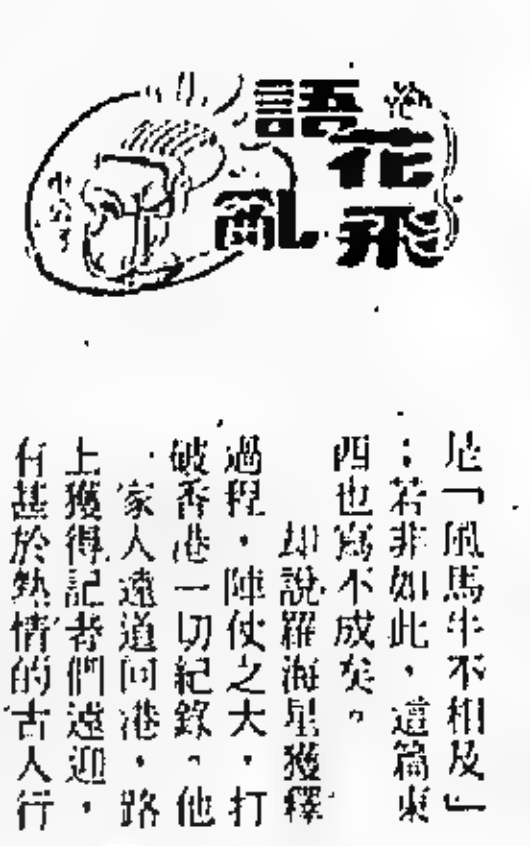 花飛
語亂
是「風馬牛不相及」
；若非如此，這篇東
西也寫不成矣。
却說羅海星獲釋
過程，陣仗之大，打
破香港一切紀錄。他
一家人遠道回港，路
上獲得記者們遠迎，
有甚於熱情的古人行